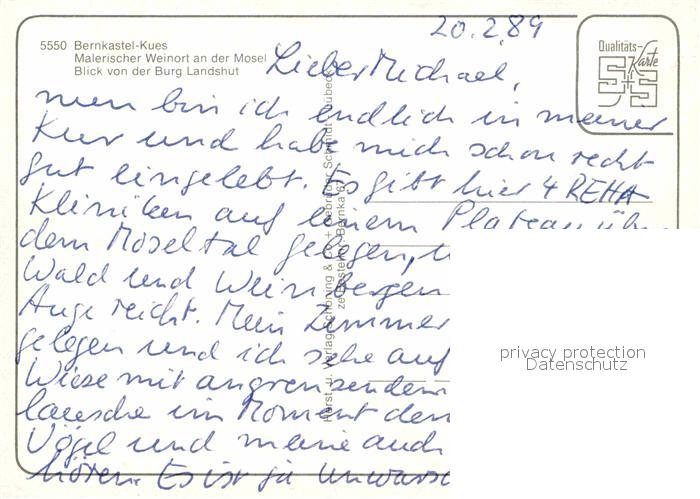 20.2.89
5550 Bernkastel-Kues
Malerischer Weinort an der Mosel
Blick von der Burg Landshut
Qualitäts-
Karte
S+S
Lieber Michael,
nun bin ich endlich in meiner
Kur und habe mich schon recht
gut eingelebt. Es gibt hier 4 REHA
Kliniken auf einem Plateau
dem Moseltal gelegen,
Wald und Weinbergen
Auge reicht. Mein Zimmer
gelegen und ich sehe auf
Wiese mit angrenzendem
lausche im Moment den
Vögel und meine auch
hören. Es ist ja
privacy protection
Datenschutz
Horst. u. Verlag Schöning & Co + Gebrüder Schmidt Lübeck